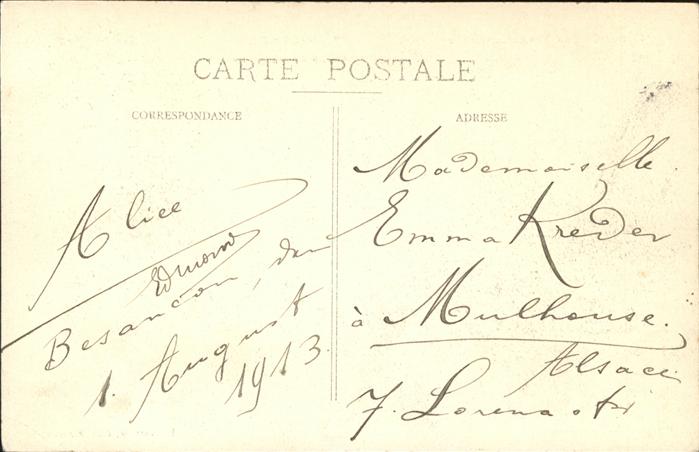 CARTE POSTALE
CORRESPONDANCE
Alice
Edmond
Besancon, den
1. August
1913.
ADRESSE
Mademoiselle
Emma Kreder
à Mulhouse.
Alsace
7. Lorena